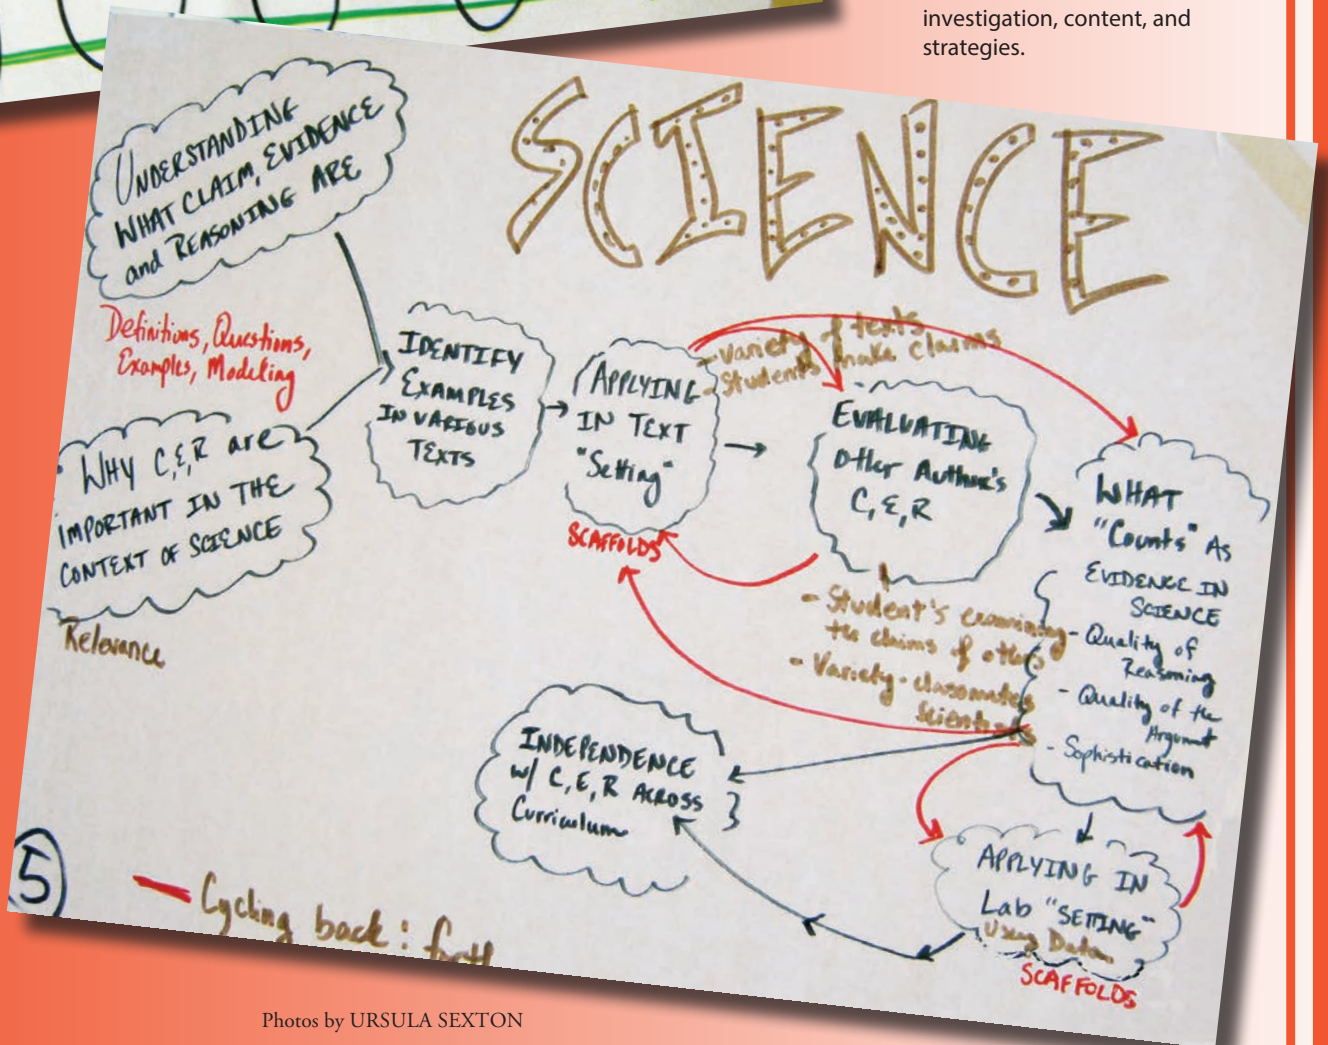 investigation, content, and
strategies.
SCIENCE
UNDERSTANDING
WHAT CLAIM, EVIDENCE
and REASONING ARE
Definitions, Questions,
Examples, Modeling
WHY C,E,R are
IMPORTANT IN THE
CONTEXT OF SCIENCE
Relevance
IDENTIFY
EXAMPLES
IN VARIOUS
TEXTS
APPLYING
IN TEXT
"Setting"
SCAFFOLDS
- Variety of texts
- Students make claims
EVALUATING
Other Author's
C, E, R
- Student's examining
the claims of others
- Variety - classmates
Scientists
WHAT
"Counts" AS
EVIDENCE IN
SCIENCE
- Quality of
Reasoning
- Quality of the
Argument
- Sophistication
APPLYING IN
Lab "SETTING"
Using Data
SCAFFOLDS
INDEPENDENCE
w/ C, E, R ACROSS
Curriculum
5
Cycling back : forth
Photos by URSULA SEXTON